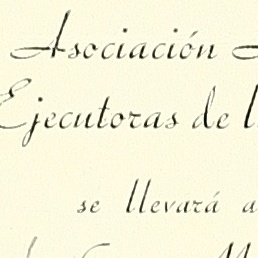 Asociación
Ejecutoras de l
se llevará a